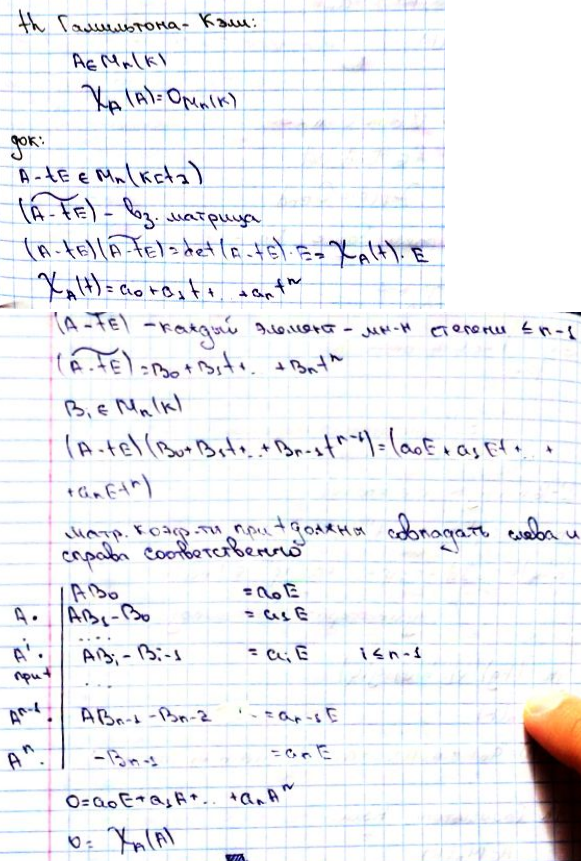 th Гамильтона-Кэли:
A∈Mₙ(K)
χ_A(A)=O_{Mₙ(K)}
док:
A-tE ∈ Mₙ(K[t])
(A-tE)~ - вз. матрица
(A-tE)(A-tE)~ = det(A-tE)·E = χ_A(t)·E
χ_A(t)=a₀+a₁t+..+aₙtⁿ
(A-tE)~ - каждый элемент - мн-н степени ≤ n-1
(A-tE)~ = B₀+B₁t+.. +Bₙtⁿ
Bᵢ ∈ Mₙ(K)
(A-tE)(B₀+B₁t+..+Bₙ₋₁tⁿ⁻¹)=(a₀E+a₁Et+..+
+aₙEtⁿ)
матр. коэф-ти при t должны совпадать слева и
справа соответственно
AB₀ =a₀E
A· AB₁-B₀ =a₁E
: ....
Aⁱ· ABᵢ-Bᵢ₋₁ =aᵢE i≤n-1
при t ...
Aⁿ⁻¹· ABₙ₋₁-Bₙ₋₂ =aₙ₋₁E
Aⁿ· -Bₙ₋₁ =aₙE
0=a₀E+a₁A+..+aₙAⁿ
0= χ_A(A)